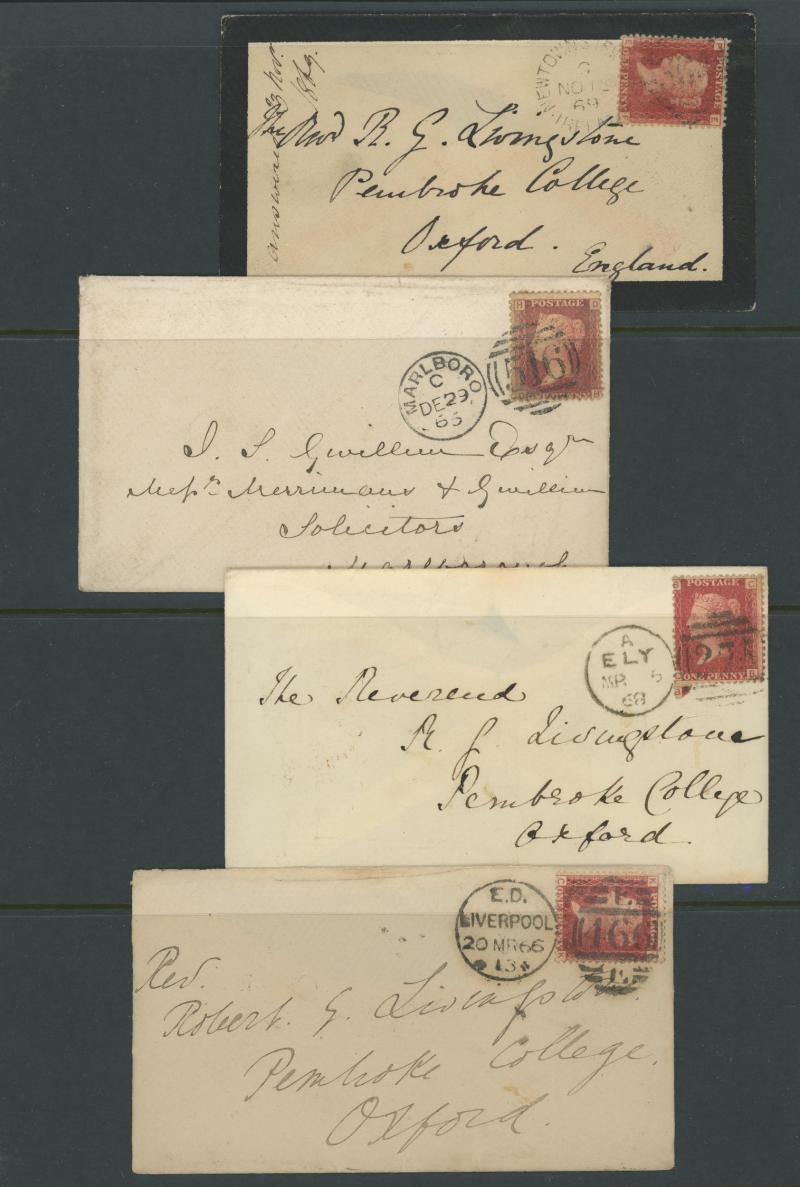 answered
Nov.
NEWTOWNST
C
NO
69
IRELA
POSTAGE
ONE PENNY
The Revd R. G. Livingstone
Pembroke College
Oxford.
England.
MARLBORO
C
DE 29
65
516
H D
POSTAGE
J. S. Gwillim Esqr
Messrs Merrimans & Gwillim
Solicitors
Marlborough
A
ELY
MR 5
68
G C
POSTAGE
27
ONE PENNY
The Reverend
R. G. Livingstone
Pembroke College
Oxford.
E.D.
LIVERPOOL
20 MR 66
* 13 *
L
466
Rev.
Robert G. Livingston
Pembroke College.
Oxford.